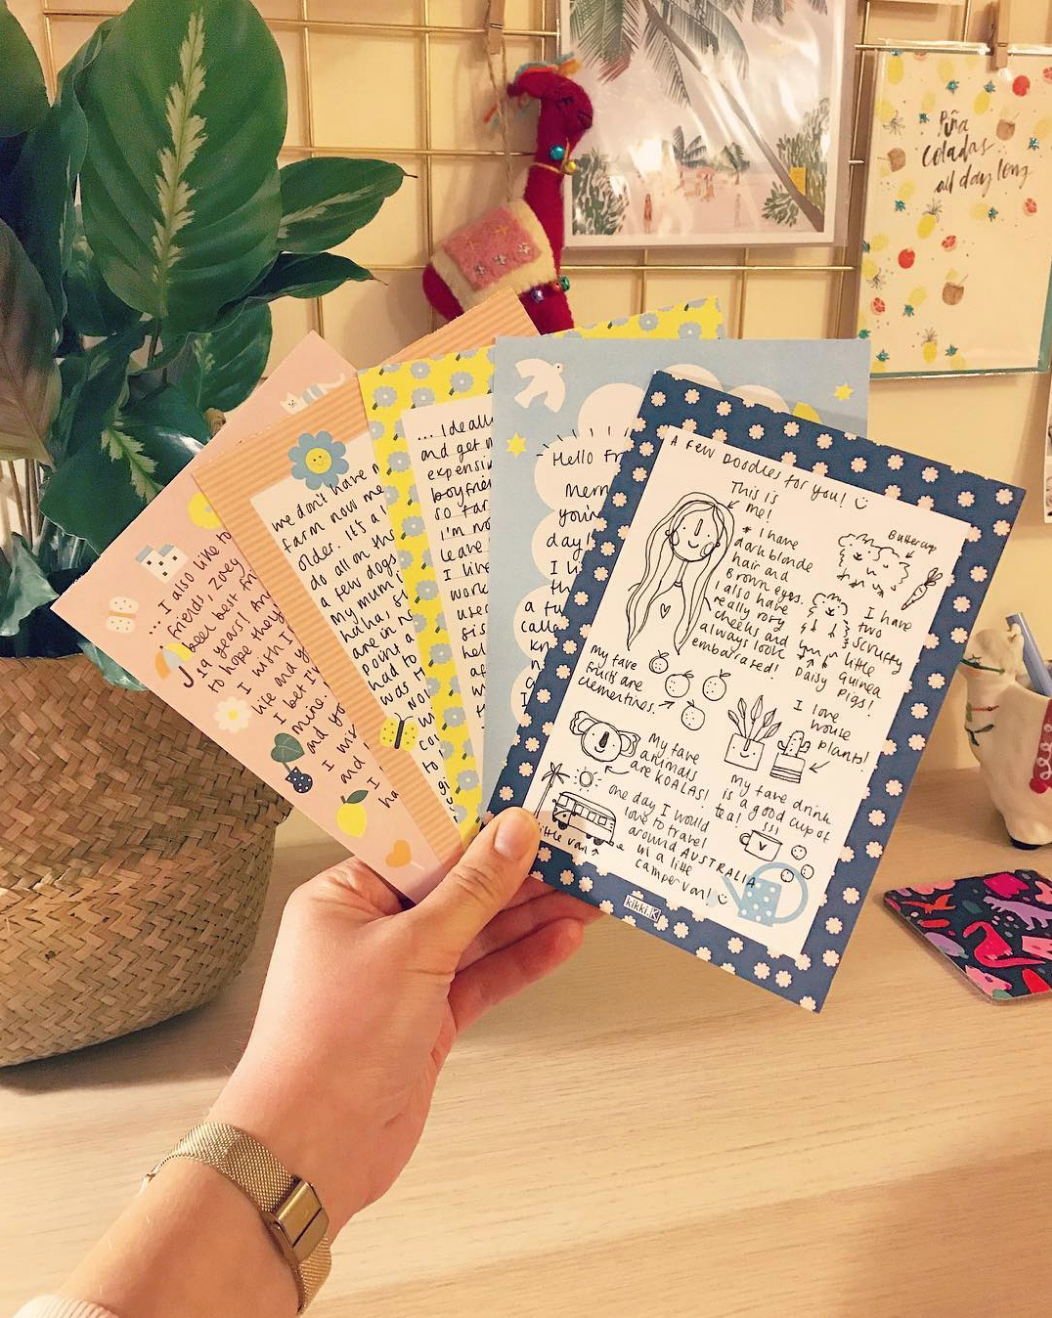 Piña
Coladas
all day long
... I also like to
friends, Zoey
been best
years! An
to hope they
I wish I
life and y
I bet I'
mine
and yo
I wis
and
I
ha
we don't have
farm now me
older. It's a l
do all on th
a few dogs
my mum i
hahas. S
are in N
point a
had to
was
NOI
w
co
to
gi
... Ideall
and get m
expensi
boyfrie
so far
I'm no
leave
I like
work
used
sis
hel
af
Hello Fr
Merr
your
day!
I li
th
a tu
calle
kn
n
A FEW DOODLES FOR YOU!
This is
me!
* i have
dark blonde
hair and
brown eyes.
I also have
really rosy
cheeks and
always look
embarrased!
Buttercup
I have
two
scruffy
little
Guinea
Pigs!
Daisy
my fave
fruits are
clementines.
I love
house
plants!
My fave
animals
are KOALAS!
My fave drink
is a good cup of
tea!
V
one day I would
love to travel
around AUSTRALIA
in a little
campervan!
little van
kikki.K